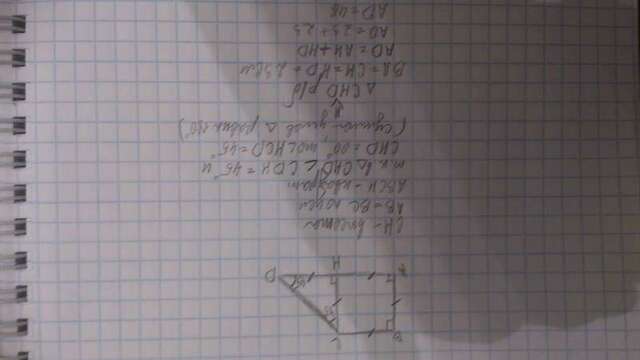 B C
45°
45°
A H D
CH - высота
AB = BC по усл
ABCH - квадрат
т.к. в △CHD ∠CDH = 45° и
CHD = 90°, то ∠HCD = 45°
(сумма углов △ равна 180°)
△CHD р/б
BA = CH = HD = 23 см
AD = AH + HD
AD = 23 + 23
AD = 46